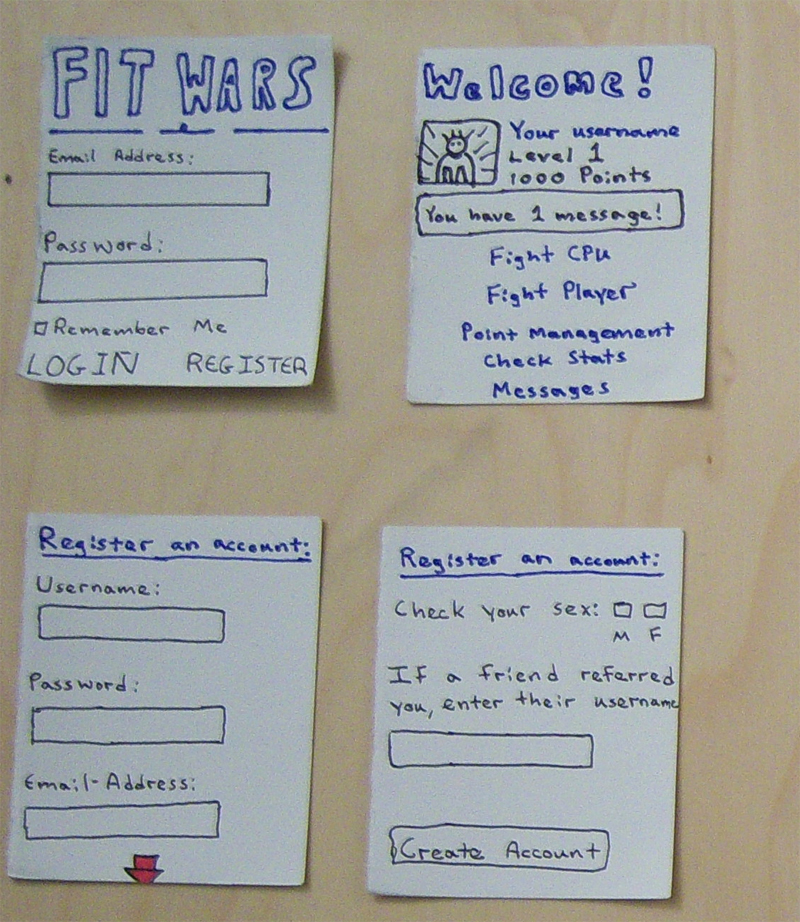 FIT WARS
Email Address:
Password:
Remember Me
LOGIN REGISTER
Welcome!
Your username
Level 1
1000 Points
You have 1 message!
Fight CPU
Fight Player
Point Management
Check Stats
Messages
Register an account:
Username:
Password:
Email-Address:
Register an account:
Check your sex:
M F
If a friend referred
you, enter their username
Create Account